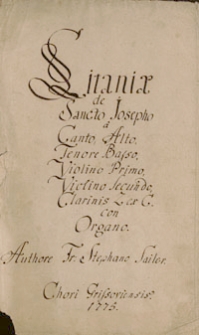 Litaniæ
de
Sancto Josepho
à
Canto, Alto,
Tenore Basso,
Violino Primo,
Violino Secundo,
Clarinis 2 ex C.
con
Organo.
Authore Fr. Stephano Sailer.
Chori Grissoviensis.
1775.